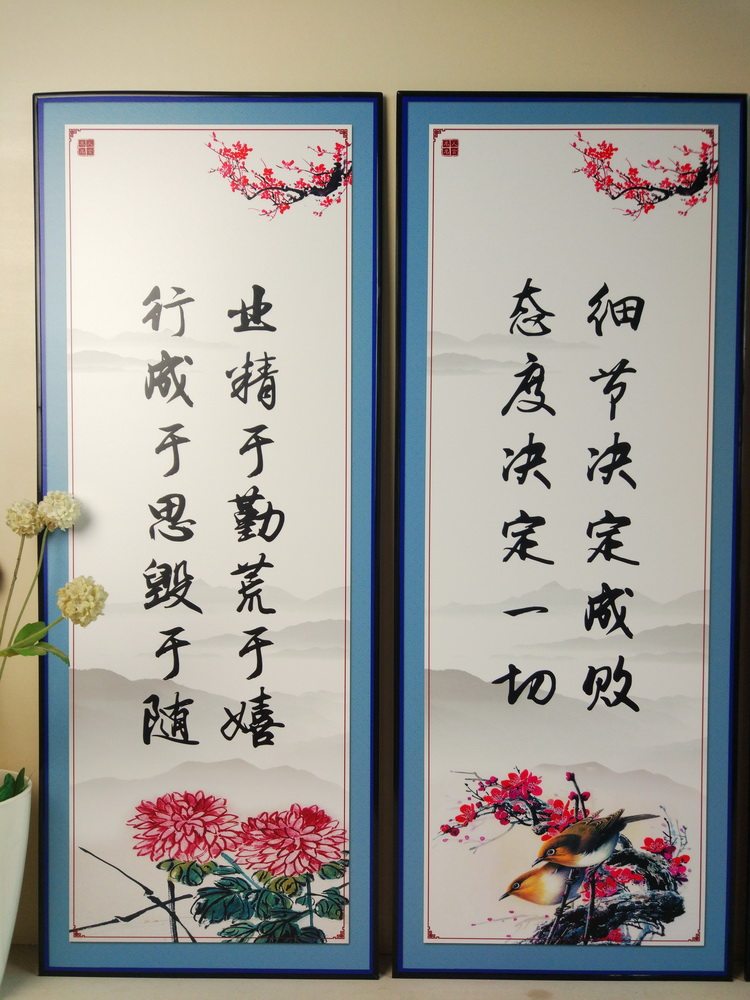 细节决定成败
态度决定一切
业精于勤荒于嬉
行成于思毁于随